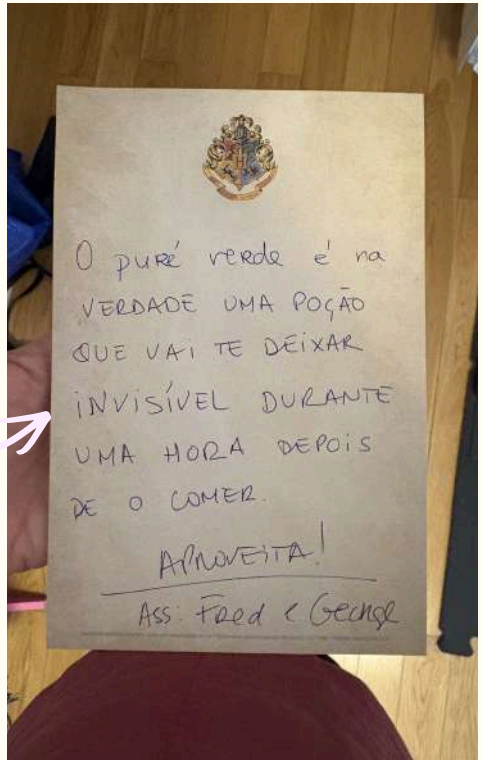 O puré verde é na
VERDADE UMA POÇÃO
QUE VAI TE DEIXAR
INVISÍVEL DURANTE
UMA HORA DEPOIS
DE O COMER.
APROVEITA!
Ass: Fred e George